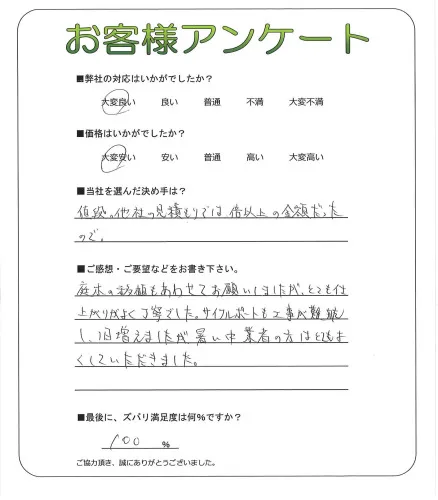 お客様アンケート
■弊社の対応はいかがでしたか？
大変良い 良い 普通 不満 大変不満
■価格はいかがでしたか？
大変安い 安い 普通 高い 大変高い
■当社を選んだ決め手は？
値段。他社の見積もりでは倍以上の金額だった
ので。
■ご感想・ご要望などをお書き下さい。
庭木の移植もあわせてお願いしましたが、とても仕
上がりがよく丁寧でした。サイクルポートも工事が難航
し、1日増えましたが暑い中業者の方はとてもよ
くしていただきました。
■最後に、ズバリ満足度は何％ですか？
100 %
ご協力頂き、誠にありがとうございました。